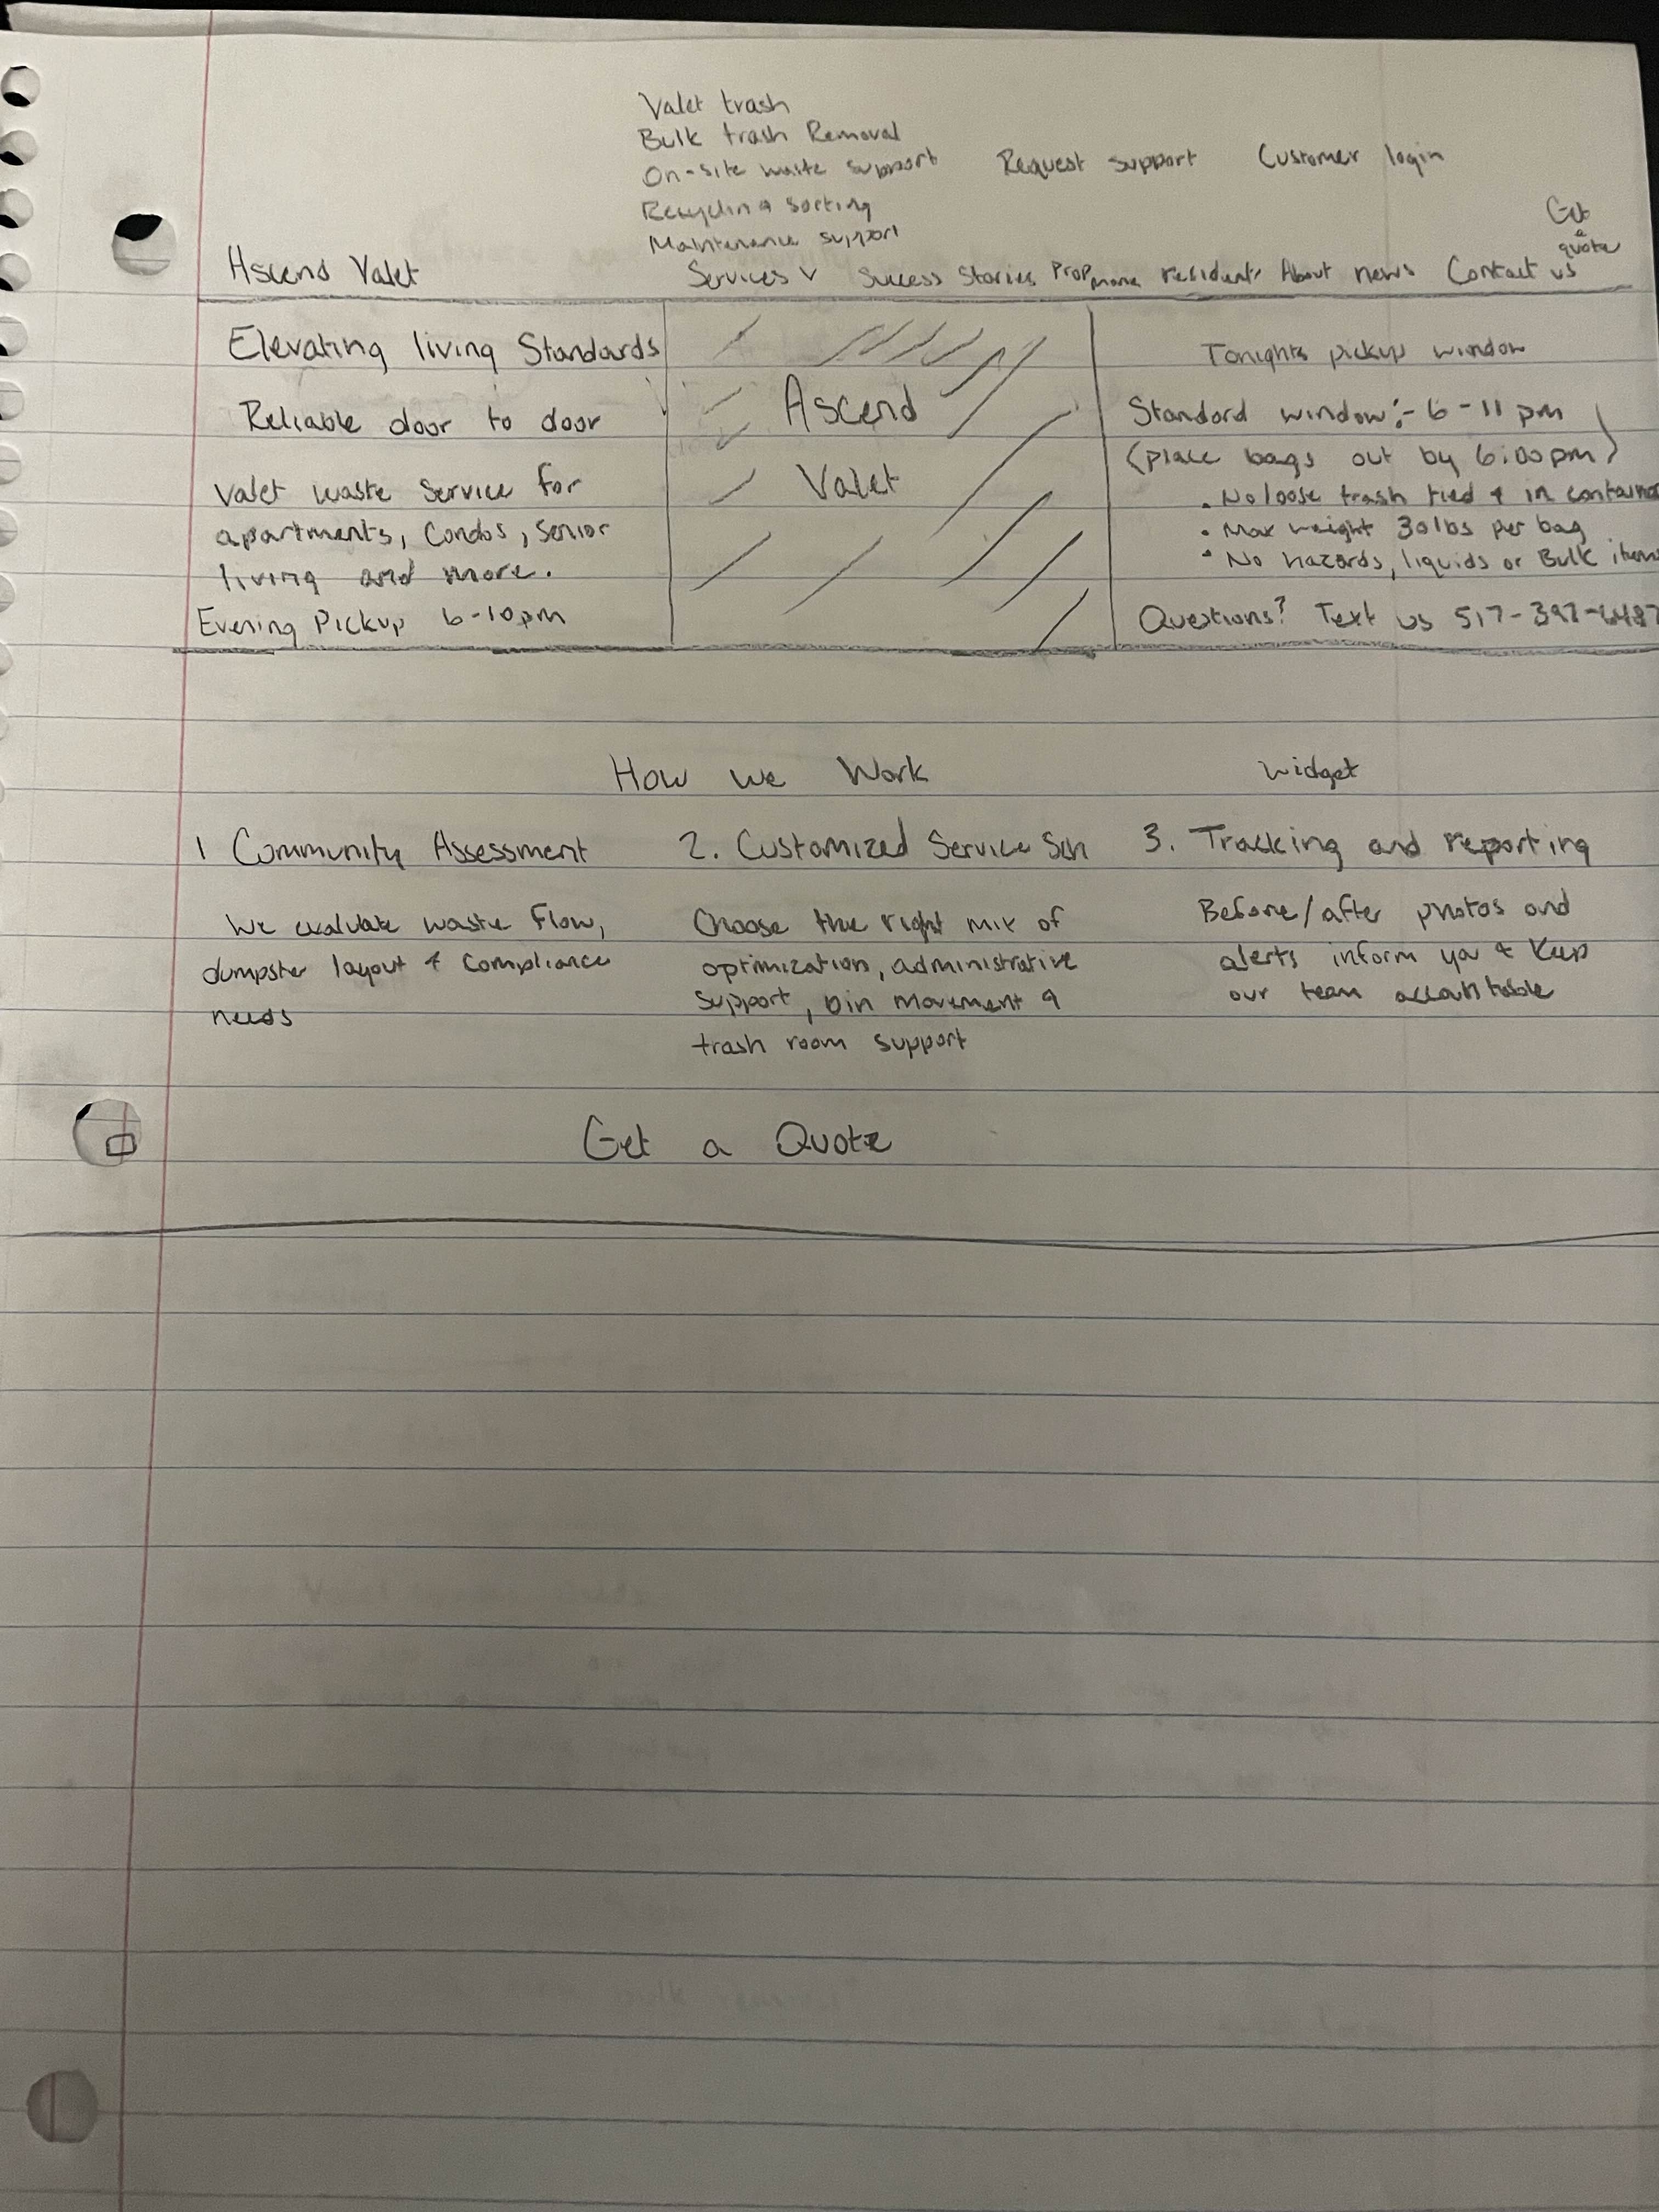 Valet trash
Bulk trash Removal
On-site waste support
Request support
Customer login
Recycling sorting
Maintenance support
Get
a
quote
Ascend Valet
Services v
Success Stories
Prop mana
residents
About
news
Contact us
Elevating living Standards
Reliable door to door
valet waste service for
apartments, Condos, Senior
living and more.
Evening Pickup 6-10pm
Ascend
Valet
Tonights pickup window
Standard window:- 6-11 pm
(place bags out by 6:00pm)
• No loose trash tied & in container
• Max weight 30lbs per bag
• No hazards, liquids or Bulk items
Questions? Text us 517-392-6487
How we Work
widget
1 Community Assessment
We evaluate waste flow,
dumpster layout & compliance
needs
2. Customized Service Sch
Choose the right mix of
optimization, administrative
support, bin movement &
trash room support
3. Tracking and reporting
Before/after photos and
alerts inform you & keep
our team accountable
Get a Quote